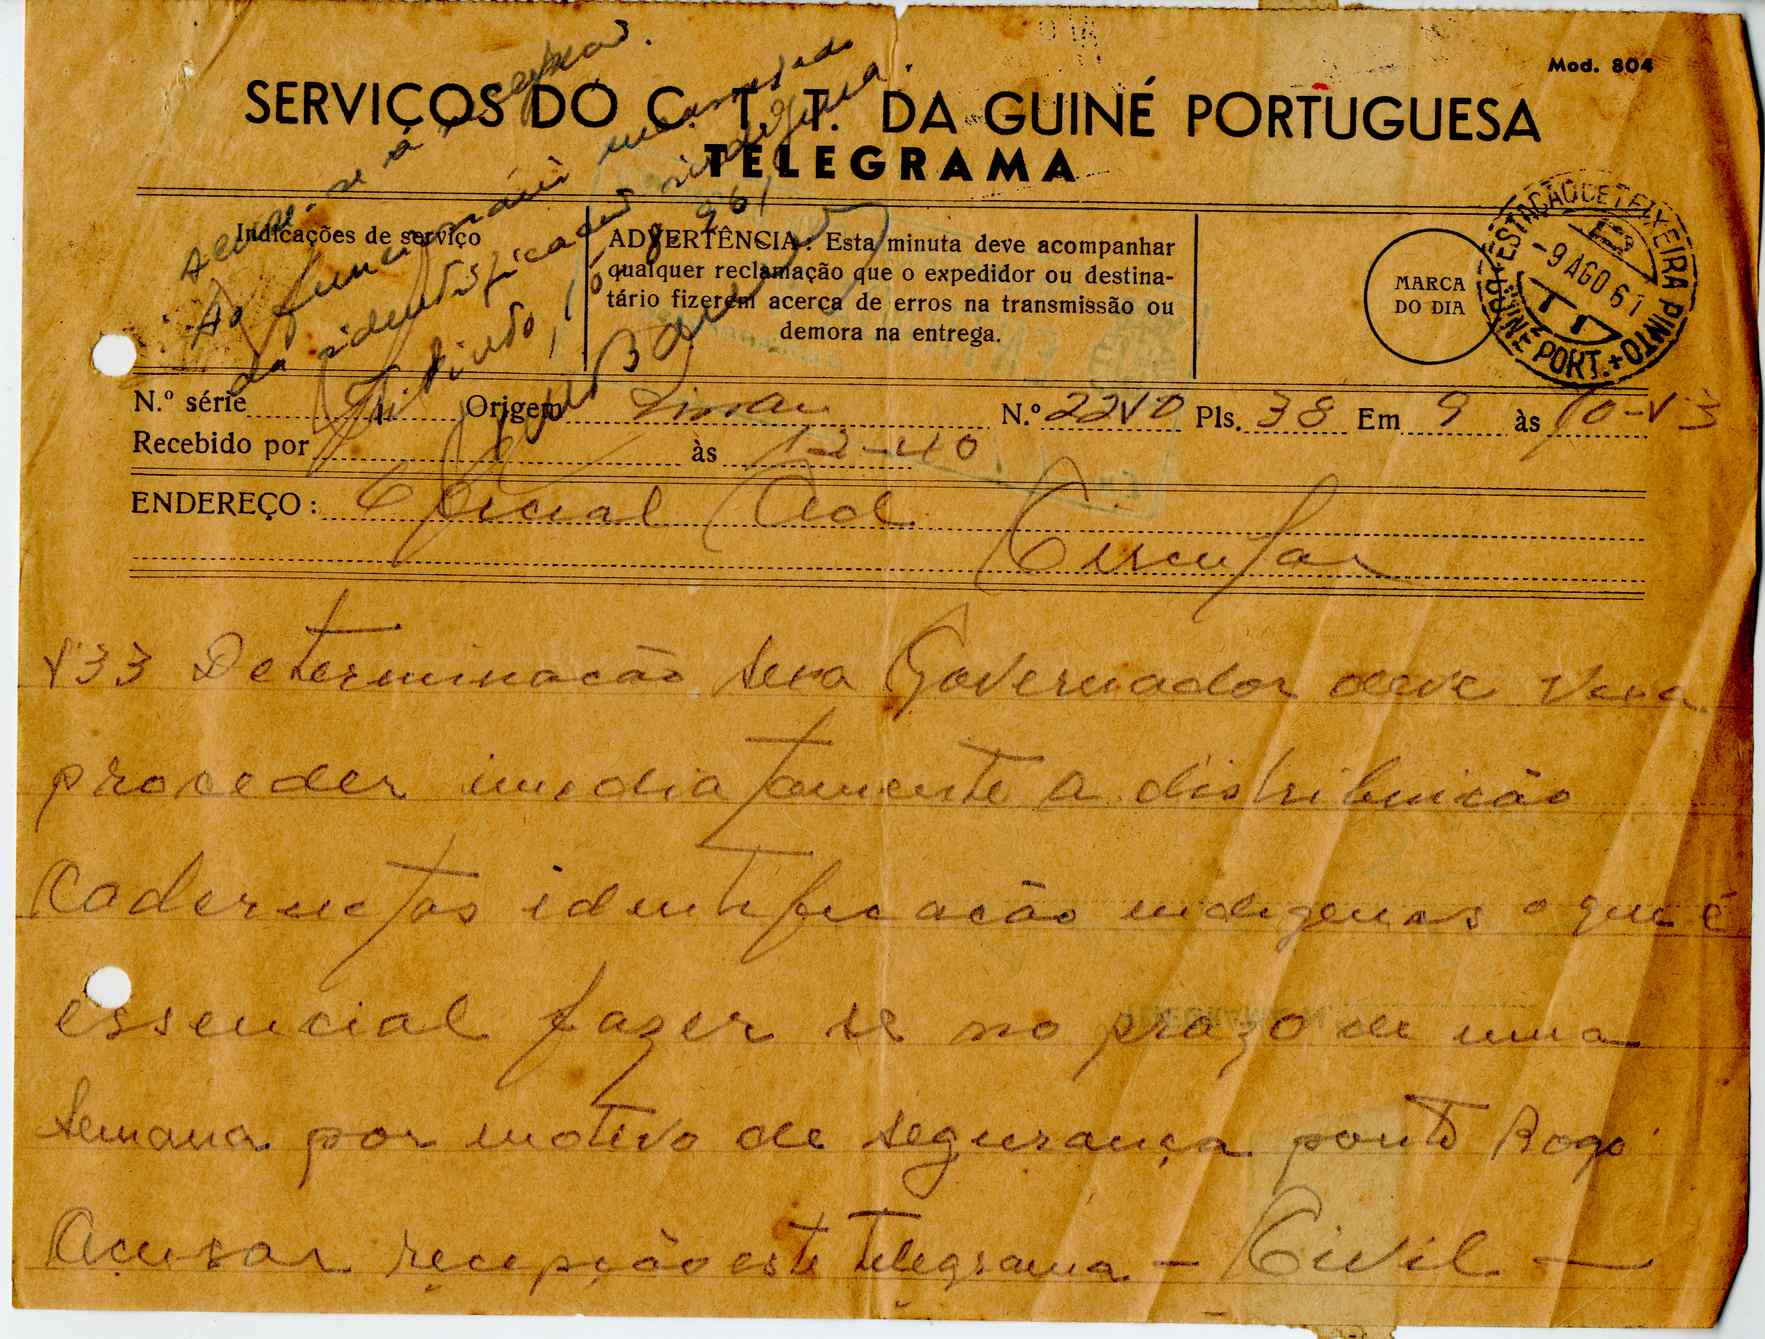 Mod. 804
SERVIÇOS DO C. T. T. DA GUINÉ PORTUGUESA
TELEGRAMA
Indicações de serviço
ADVERTÊNCIA: Esta minuta deve acompanhar
qualquer reclamação que o expedidor ou destina-
tário fizerem acerca de erros na transmissão ou
demora na entrega.
MARCA
DO DIA
ESTAÇÃO DE TEIXEIRA PINTO
-9 AGO 61
GUINÉ PORT.
Ao funcionário encarregado
da identificação indígena.
N.º série Origem Bissau N.º Pls. 38 Em 9 às
Recebido por às 12-40
ENDEREÇO: Oficial Ad
Circular
V33 Determinacão Sexa Governador deve Vexa
proceder imediatamente a distribuicão
Cadernetas identificacão indigenas o que é
essencial fazer se no prazo de uma
Semana por motivo de segurança ponto Rogo
Acusar recepção este telegrama - Civil -